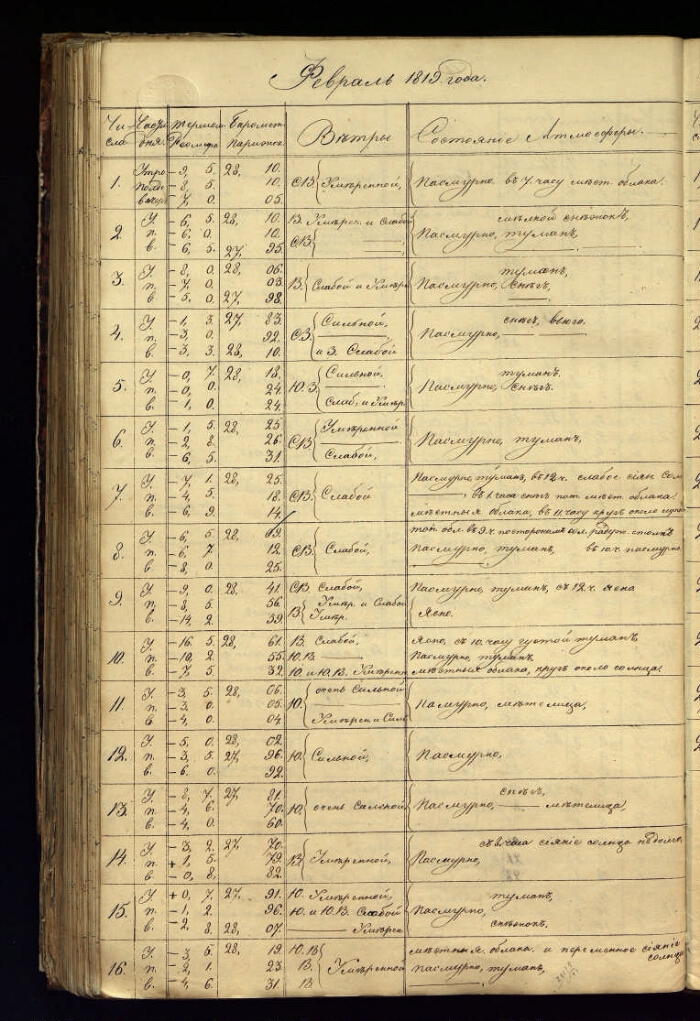 Февраль 1819 года.
Чи- Часы термом. Баромет. Вѣтры Состоянiе Атмосферы.
сла дня. Реомюр. Парижск.
1. Утро -9, 5. 28, 10. СВ Умѣренной, Пасмурно. въ 7. часу мѣст. облака.
Полд. -8, 5. 10.
Вечер -7, 0. 05.
2. У. -6, 5. 28, 10. В. Умѣрен. и Слабой мѣлкой снѣжокъ,
п. -6, 0. 10. СВ Пасмурно, туманъ,
в. -6, 5. 27, 95.
3. У. -8, 0. 28, 06. туманъ,
п. -7, 0. 03. В. Слабой и Умѣр. Пасмурно, снѣгъ.
в. -5, 0. 27, 98.
4. У. -1, 3. 27, 83. Сильной, снѣгъ, вьюго.
п. -3, 0. 92. СЗ Пасмурно,
в. -3, 3. 28, 10. и З. Слабой
5. У. -0, 7. 28, 18. Сильной. туманъ,
п. -0, 0. 24. Ю.З Пасмурно, снѣгъ.
в. -1, 0. 24. Слаб. и Умѣр.
6. У. -1, 5. 28, 25. Умѣренной
п. -2, 8. 26. СВ Пасмурно, туманъ,
в. -6, 5. 31. Слабой,
7. У. -7, 1. 28, 25. Пасмурно, туманъ, въ 12 ч. слабое сiян. Сол.
п. -4, 5. 18. СВ Слабой часа мѣст. облака.
в. -6, 9. 14. мѣстныя облака, въ 11. часу кругъ около
8. У. -6, 5. 28, обл. въ 9 ч.
п. -6, 7. 12. СВ Слабой, Пасмурно, туманъ, въ 10 ч. пасмурно
в. -8, 0. 25.
9. У. -9, 0. 28, 41. СВ Слабой, Пасмурно, туманъ, съ 12 ч. ясно
п. -8, 5. 56. В Умѣр. и Слабой Ясно.
в. -14, 2. 59. Умѣр.
10. У. -16, 5. 28, 61. В. Слабой, Ясно, съ 10. часу густой туманъ,
п. -10, 2. 55. Ю.В. Пасмурно, туманъ,
в. -7, 5. 32. Ю. и Ю.В. Умѣрен. мѣстныя облака, кругъ около солнца.
11. У. -3, 5. 28, 06. очень Сильной
п. -3, 0. 05. Ю. Пасмурно, мѣтелица,
в. -4, 0. 04 Умѣрен. и Сил.
12. У. -5, 0. 28, 02.
п. -3, 5. 27, 96. Ю. Сильной, Пасмурно,
в. -6, 0. 92.
13. У. -8, 7. 27, 81. снѣгъ,
п. -4, 6. 70. Ю. очень Сильной Пасмурно, мѣтелица,
в. -4, 0. 60.
14. У. -3, 2. 27, 70. часа сiянiе солнца недолго,
п. +1, 5. 72. В Умѣренной, Пасмурно,
в. -0, 8. 82.
15. У +0, 7. 27, 91. Ю. Умѣренной, туманъ,
п. -1, 2. 96. Ю. и Ю.В. Слабой Пасмурно,
в. -2, 8. 28, 07. Умѣрен. снѣжокъ,
16. У. -3, 5. 28, 19. Ю.В мѣстныя облака. и переменное сiянiе солнца
п. -2, 1. 23. В. Умѣренной Пасмурно, туманъ,
в. -4, 6. 31. В.